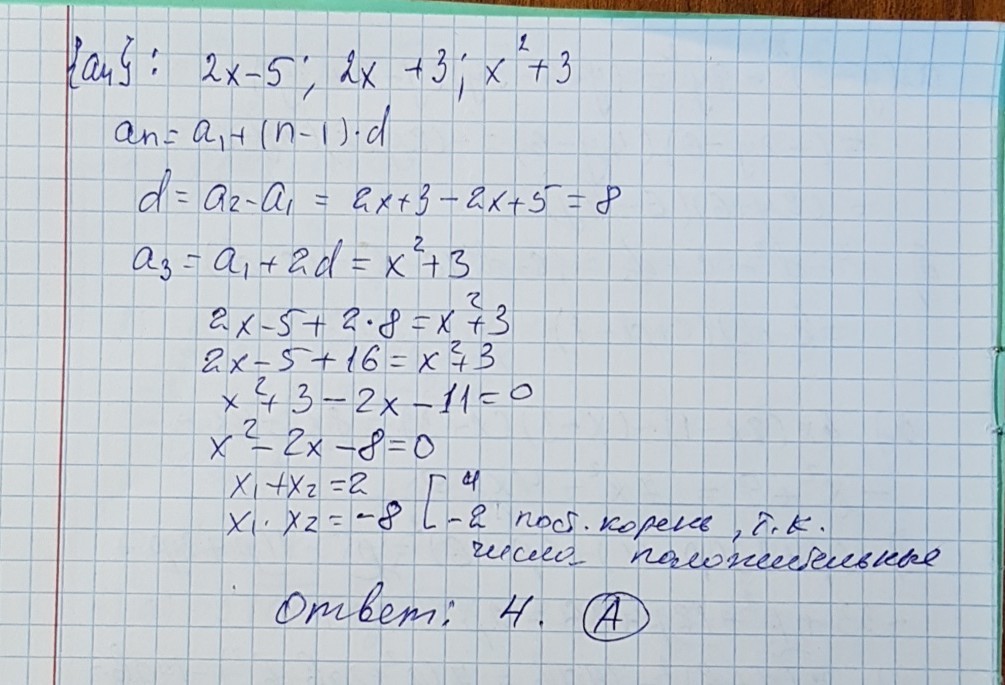 {an}: 2x-5; 2x+3; x²+3
an=a₁+(n-1)·d
d=a₂-a₁ = 2x+3-2x+5=8
a₃=a₁+2d=x²+3
2x-5+2·8=x²+3
2x-5+16=x²+3
x²+3-2x-11=0
x²-2x-8=0
x₁+x₂=2 [ 4
x₁·x₂=-8 [ -2 пост. корень, т.к.
числа положительные
Ответ: 4. А